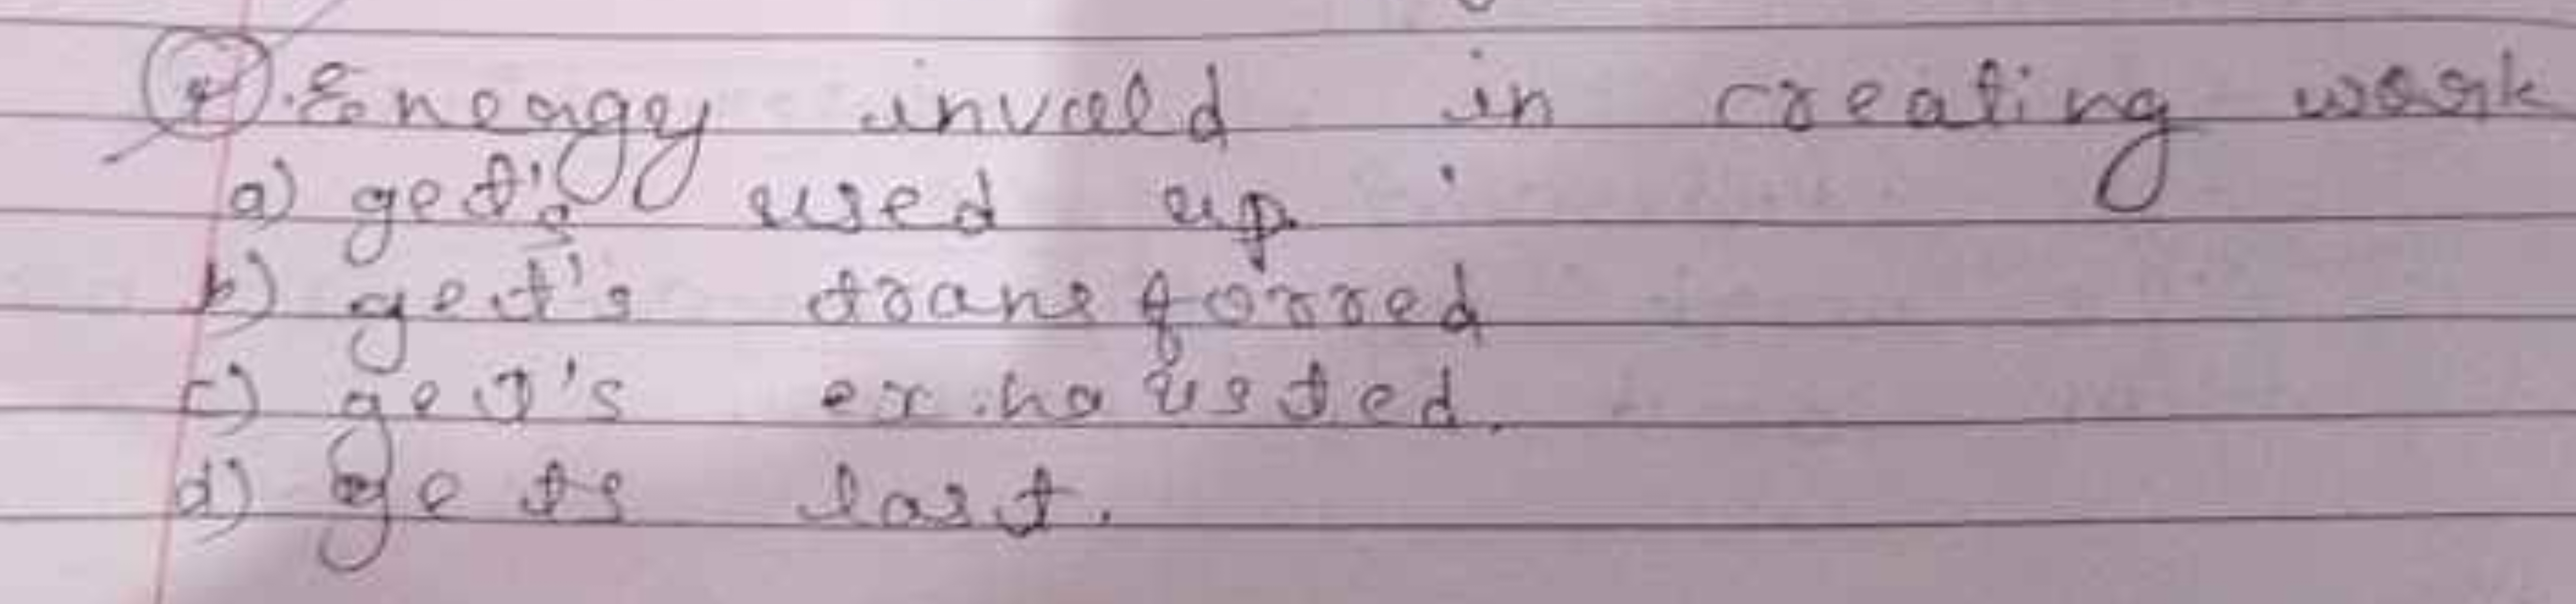 4. Energy invaeld in creating work
a) get's used up.
b) get's transforred
c) get's exhausted.
d) gets last.